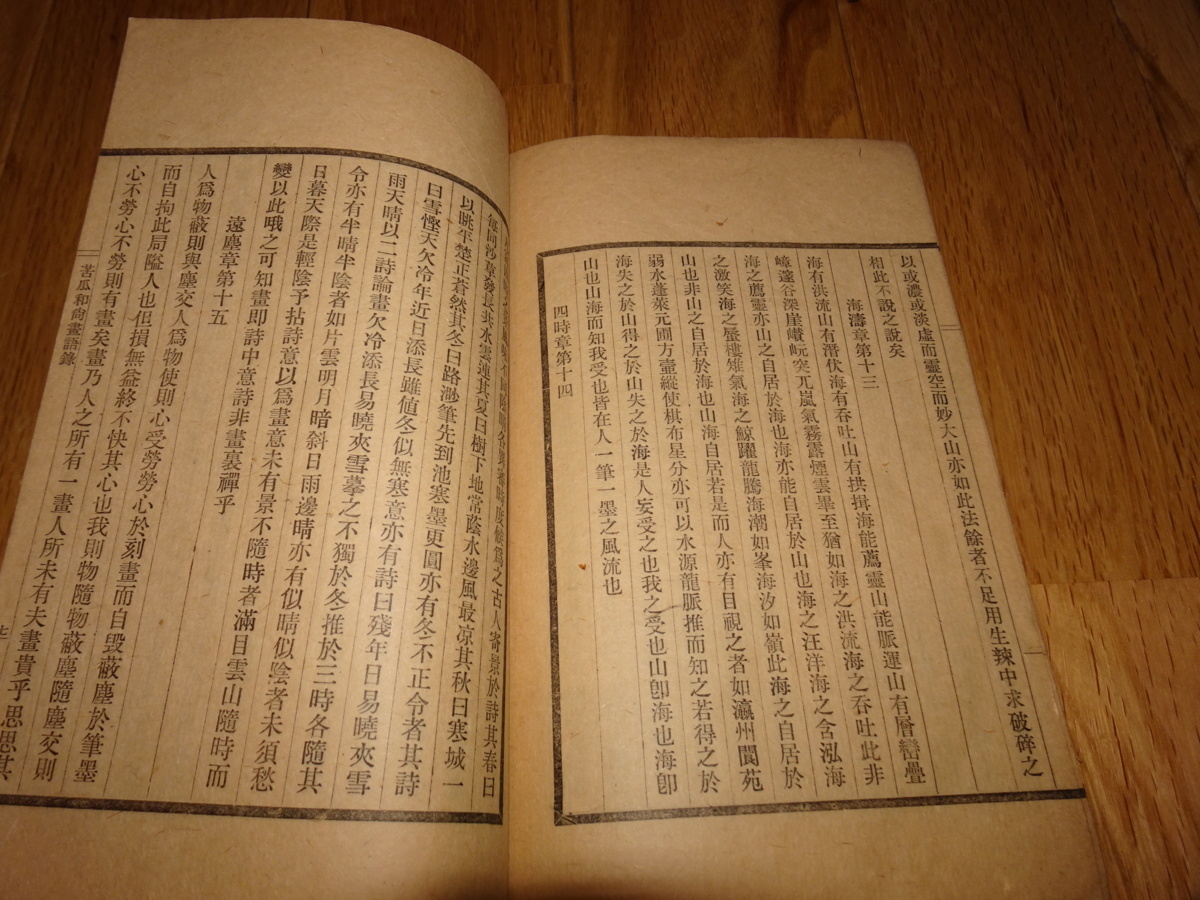 以或濃或淡虛而靈空而妙大山亦如此法餘者不足用生辣中求破碎之
相此不說之說矣
海濤章第十三
海有洪流山有潛伏海有吞吐山有拱揖海能薦靈山能脈運山有層巒疊
嶂邃谷深崖巑岏突兀嵐氣霧露煙雲畢至猶如海之洪流海之吞吐此非
海之薦靈亦山之自居於海也海亦能自居於山也海之汪洋海之含泓海
之激笑海之蜃樓雉氣海之鯨躍龍騰海潮如峯海汐如嶺此海之自居於
山也非山之自居於海也山海自居若是而人亦有目視之者如瀛州閬苑
弱水蓬萊元圃方壺縱使棋布星分亦可以水源龍脈推而知之若得之於
海失之於山得之於山失之於海是人妄受之也我之受也山卽海也海卽
山也山海而知我受也皆在人一筆一墨之風流也
四時章第十四
爲之古人寄景於詩其春曰
每同沙草發長共水雲連其夏曰樹下地常蔭水邊風最凉其秋曰寒城一
以眺平楚正蒼然其冬曰路渺筆先到池寒墨更圓亦有冬不正令者其詩
曰雪慳天欠冷年近日添長雖値冬似無寒意亦有詩曰殘年日易曉夾雪
雨天晴以二詩論畫欠冷添長易曉夾雪摹之不獨於冬推於三時各隨其
令亦有半晴半陰者如片雲明月暗斜日雨邊晴亦有似晴似陰者未須愁
日暮天際是輕陰予拈詩意以爲畫意未有景不隨時者滿目雲山隨時而
變以此哦之可知畫卽詩中意詩非畫裏禪乎
遠塵章第十五
人爲物蔽則與塵交人爲物使則心受勞勞心於刻畫而自毀蔽塵於筆墨
而自拘此局隘人也但損無益終不快其心也我則物隨物蔽塵隨塵交則
心不勞心不勞則有畫矣畫乃人之所有一畫人所未有夫畫貴乎思思其
苦瓜和尙畫語錄